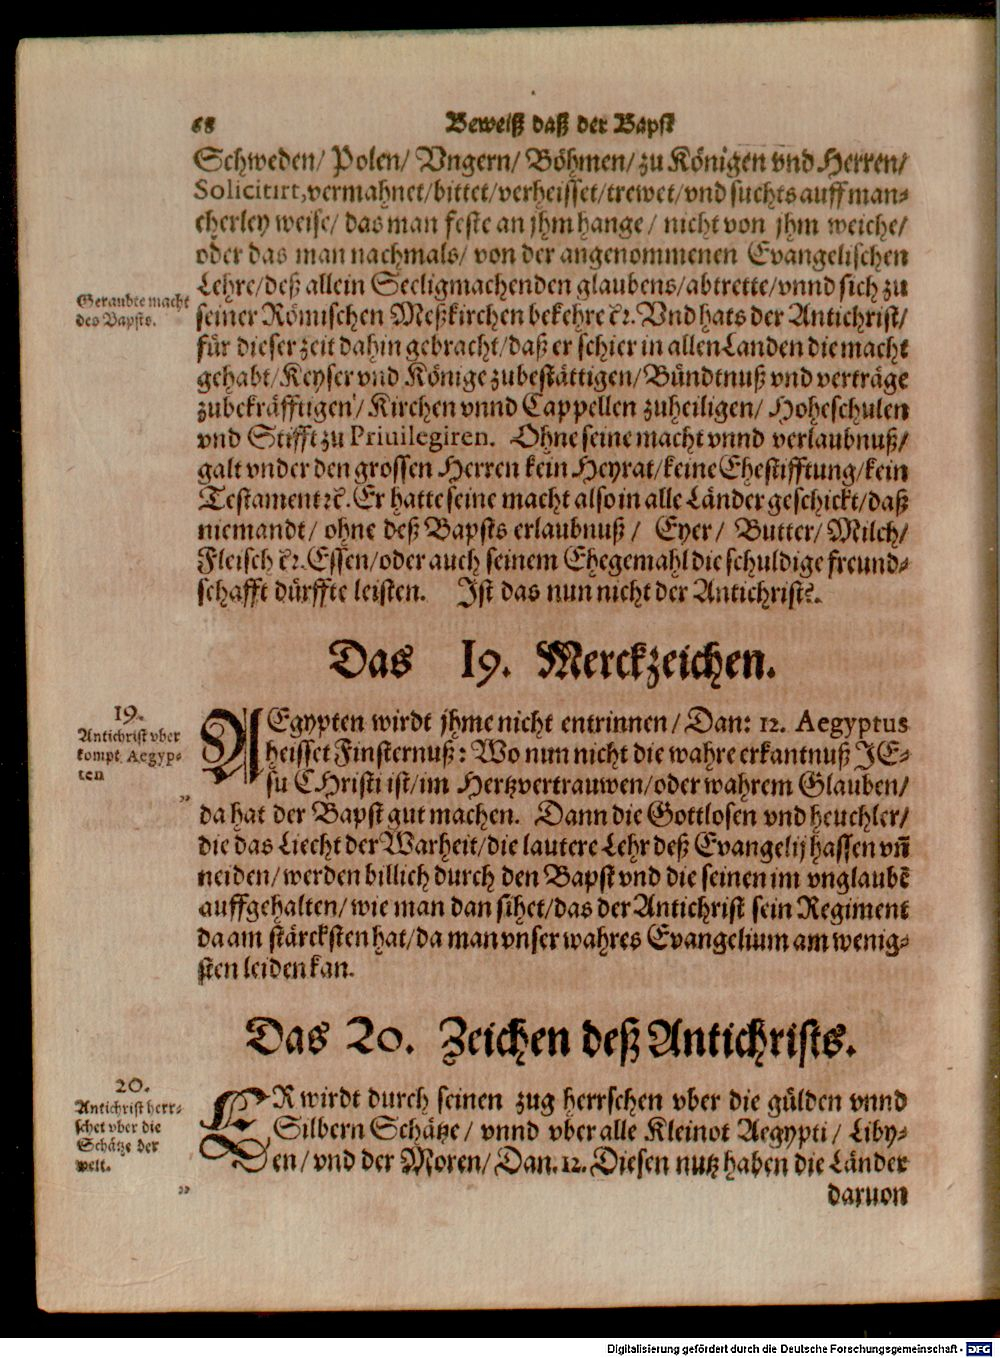 68 Beweiß daß der Bapst
Schweden/ Polen/ Vngern/ Böhmen/ zu Königen vnd Herren/
Solicitirt, vermahnet/ bittet/ verheisset/ trewet/ vnd suchts auff man-
cherley weise/ das man feste an jhm hange/ nicht von jhm weiche/
oder das man nachmals/ von der angenommenen Evangelischen
Lehre/ deß allein Seeligmachenden glaubens/ abtrette/ vnnd sich zu
Geraubte macht
des Bapsts.
seiner Römischen Meßkirchen bekehre ꝛc. Vnd hats der Antichrist/
für dieser zeit dahin gebracht/ daß er schier in allen Landen die macht
gehabt/ Keyser vnd Könige zubestättigen/ Bündtnuß vnd verträge
zubekräfftigen/ Kirchen vnnd Cappellen zuheiligen/ Hoheschulen
vnd Stifft zu Priuilegiren. Ohne seine macht vnnd verlaubnuß/
galt vnder den grossen Herren kein Heyrat/ keine Ehestifftung/ kein
Testament ꝛc. Er hatte seine macht also in alle Länder geschickt/ daß
niemandt/ ohne deß Bapsts erlaubnuß/ Eyer/ Butter/ Milch/
Fleisch ꝛc. Essen/ oder auch seinem Ehegemahl die schuldige freund-
schafft dürffte leisten. Ist das nun nicht der Antichrist?.
Das 19. Merckzeichen.
19.
Antichrist vber
kompt Aegyp-
ten
„
AEgypten wirdt jhme nicht entrinnen/ Dan: 12. Aegyptus
heisset Finsternuß: Wo nun nicht die wahre erkantnuß JE-
su CHristi ist/ im Hertzvertrauwen/ oder wahrem Glauben/
da hat der Bapst gut machen. Dann die Gottlosen vnd heuchler/
die das Liecht der Warheit/ die lautere Lehr deß Evangelij hassen vn̄
neiden/ werden billich durch den Bapst vnd die seinen im vnglaubē
auffgehalten/ wie man dan sihet/ das der Antichrist sein Regiment
da am stärcksten hat/ da man vnser wahres Evangelium am wenig-
sten leiden kan.
Das 20. Zeichen deß Antichrists.
20.
Antichrist herr-
schet vber die
Schätze der
welt.
„
ER wirdt durch seinen zug herrschen vber die gülden vnnd
Silbern Schätze/ vnnd vber alle Kleinot Aegypti/ Liby-
en/ vnd der Moren/ Dan. 12. Diesen nutz haben die Länder
daruon
Digitalisierung gefördert durch die Deutsche Forschungsgemeinschaft - DFG